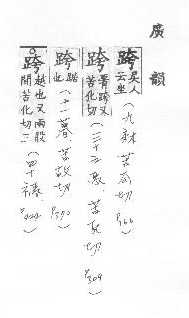 廣韻
跨 吴人云坐 (九麻 苦瓜切 P166)
跨 跨又苦化切 (三十五馬 苦瓦切 P309)
跨 踞也 (十一暮 苦故切 P370)
跨 越也又兩股間苦化切二 (四十禡